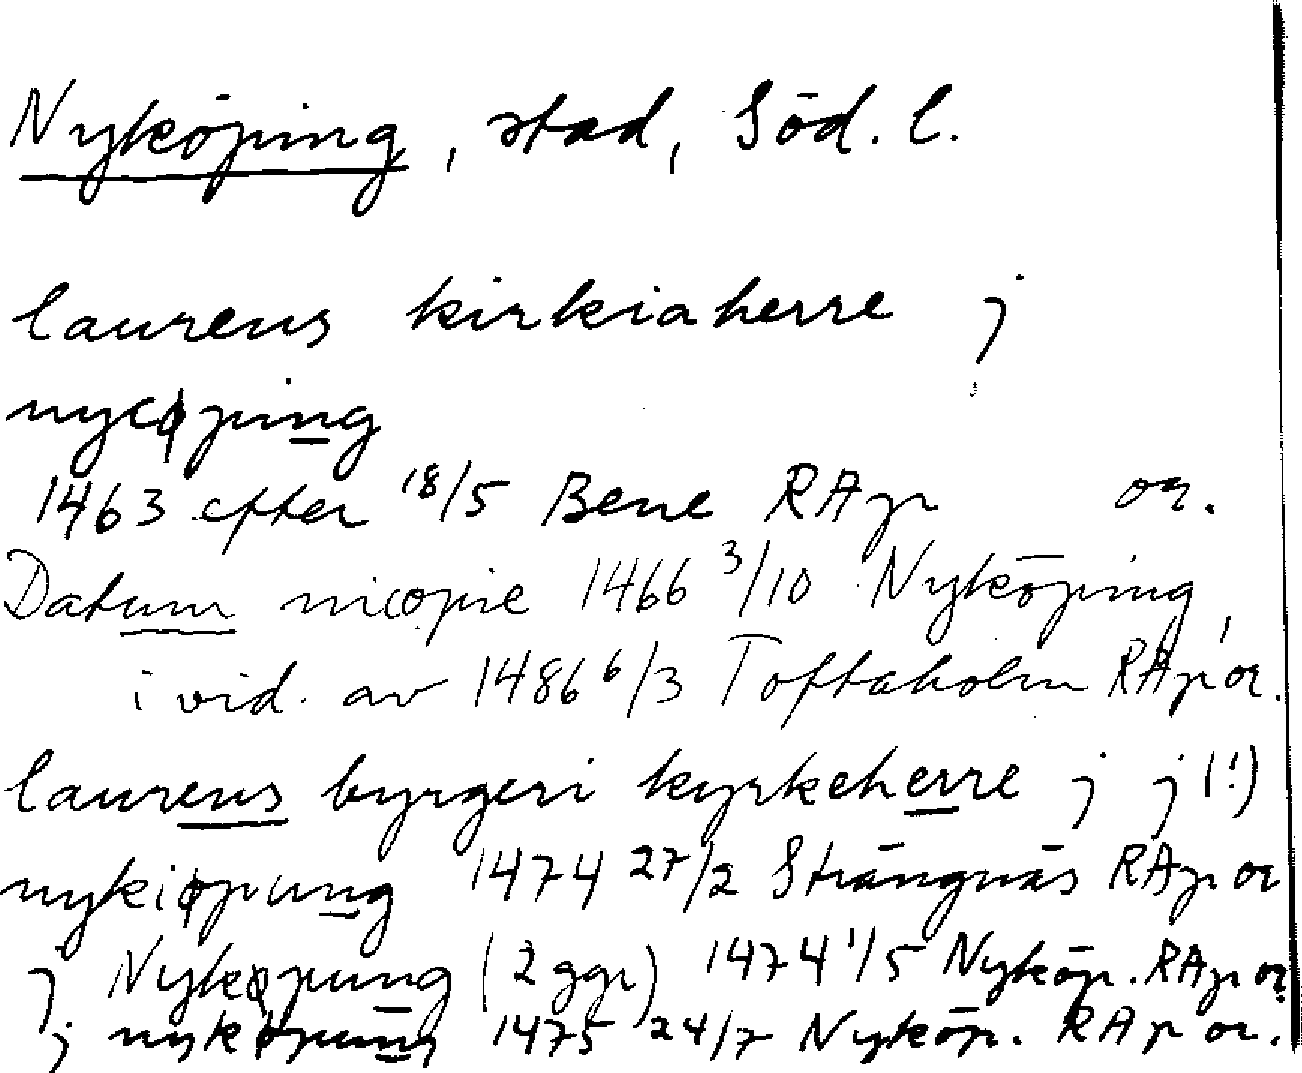 Nyköping, stad, Söd. l.
laurens kirkiaherre j
nycøping
1463 efter 18/5 Bene RAp or.
Datum nicopie 1466 3/10 Nyköping,
i vid. av 1486 6/3 Toftaholm RAp or.
laurens byrgeri kyrkeherre j j (!)
nykiøpung 1474 27/2 Strängnäs RAp or
j Nykøpung (2 ggr) 1474 1/5 Nyköp. RAp or.
j nykøpung 1475 24/7 Nyköp. RAp or.